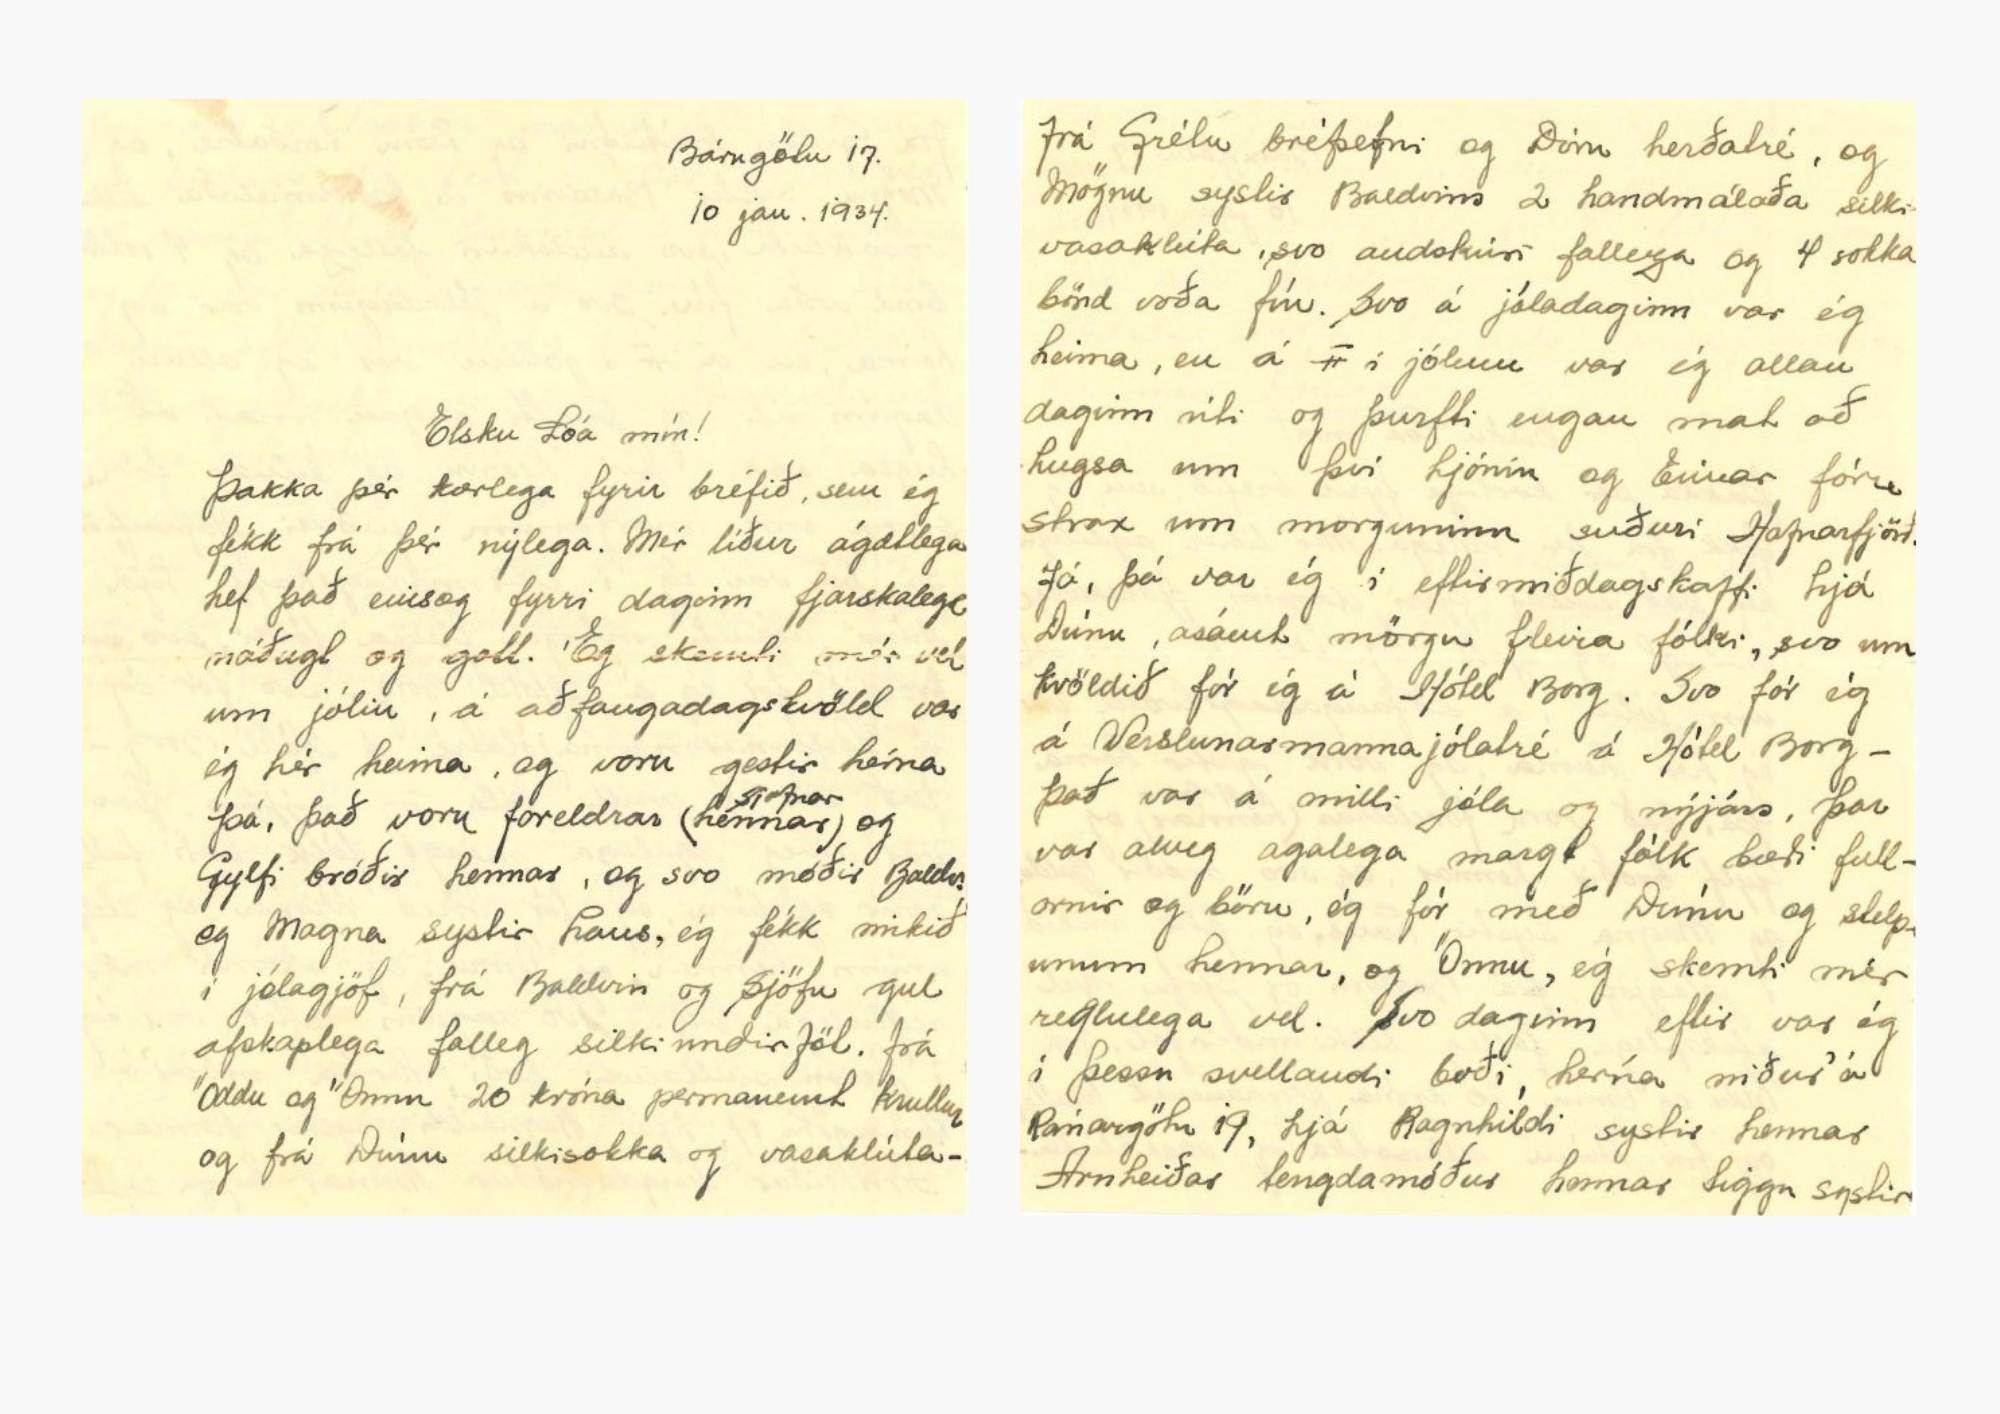 Bárugötu 17.
10 jan. 1934.
Elsku Lóa mín!
Þakka þér kærlega fyrir bréfið, sem ég
fékk frá þér nýlega. Mér líður ágætlega
hef það einsog fyrri daginn fjarskalega
náðugt og gott. Ég skemti mér vel
um jólin, á aðfangadagskvöld var
ég hér heima, og voru gestir hérna
þá, það voru foreldrar (hennar) og
Sjafnar
Gylfi bróðir hennar, og svo móðir Baldv.
og Magna systir hans, ég fékk mikið
í jólagjöf, frá Baldvin og Sjöfu gul
afskaplega falleg silkiundirföt. frá
Oddu og Önnu 20 króna permanent krullur
og frá Dúnu silkisokka og vasaklúta-
frá Grétu bréfsefni og Dóru herðatré, og
Mögnu systir Baldvins 2 handmálaða silki-
vasaklúta, svo andskuri fallega og 4 sokka
bönd voða fín. Svo á jóladaginn var ég
heima, en á II í jólum var ég allan
daginn úti og þurfti engan mat að
hugsa um því hjónin og Einar fóru
strax um morguninn suðurí Hafnarfjörð.
Já, þá var ég í eftirmiðdagskaffi hjá
Dúnu, ásamt mörgu fleira fólki, svo um
kvöldið fór ég á Hótel Borg. Svo fór ég
á Verslunarmannajólatré á Hótel Borg -
það var á milli jóla og nýjárs, þar
var alveg agalega margt fólk bæði full-
ornir og börn, ég fór með Dúnu og stelp-
unum hennar, og Önnu, ég skemti mér
reglulega vel. Svo daginn eftir var ég
í þessu svellandi boði, hérna niður'á
Ránargötu 19, hjá Ragnhildi systir hennar
Arnheiðar tengdamóður hennar Siggu systir